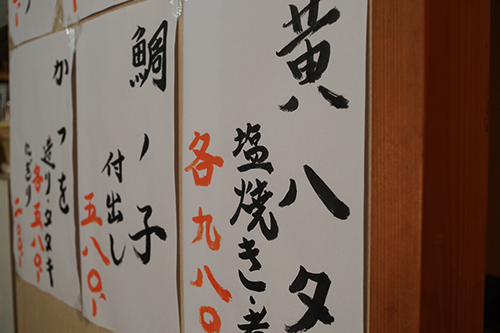 黄八タ
塩焼き・煮
各九八〇
鯛ノ子
付出し
五八〇、
かつを
造り・タタキ
各五八〇、
にぎり
二〇〇、